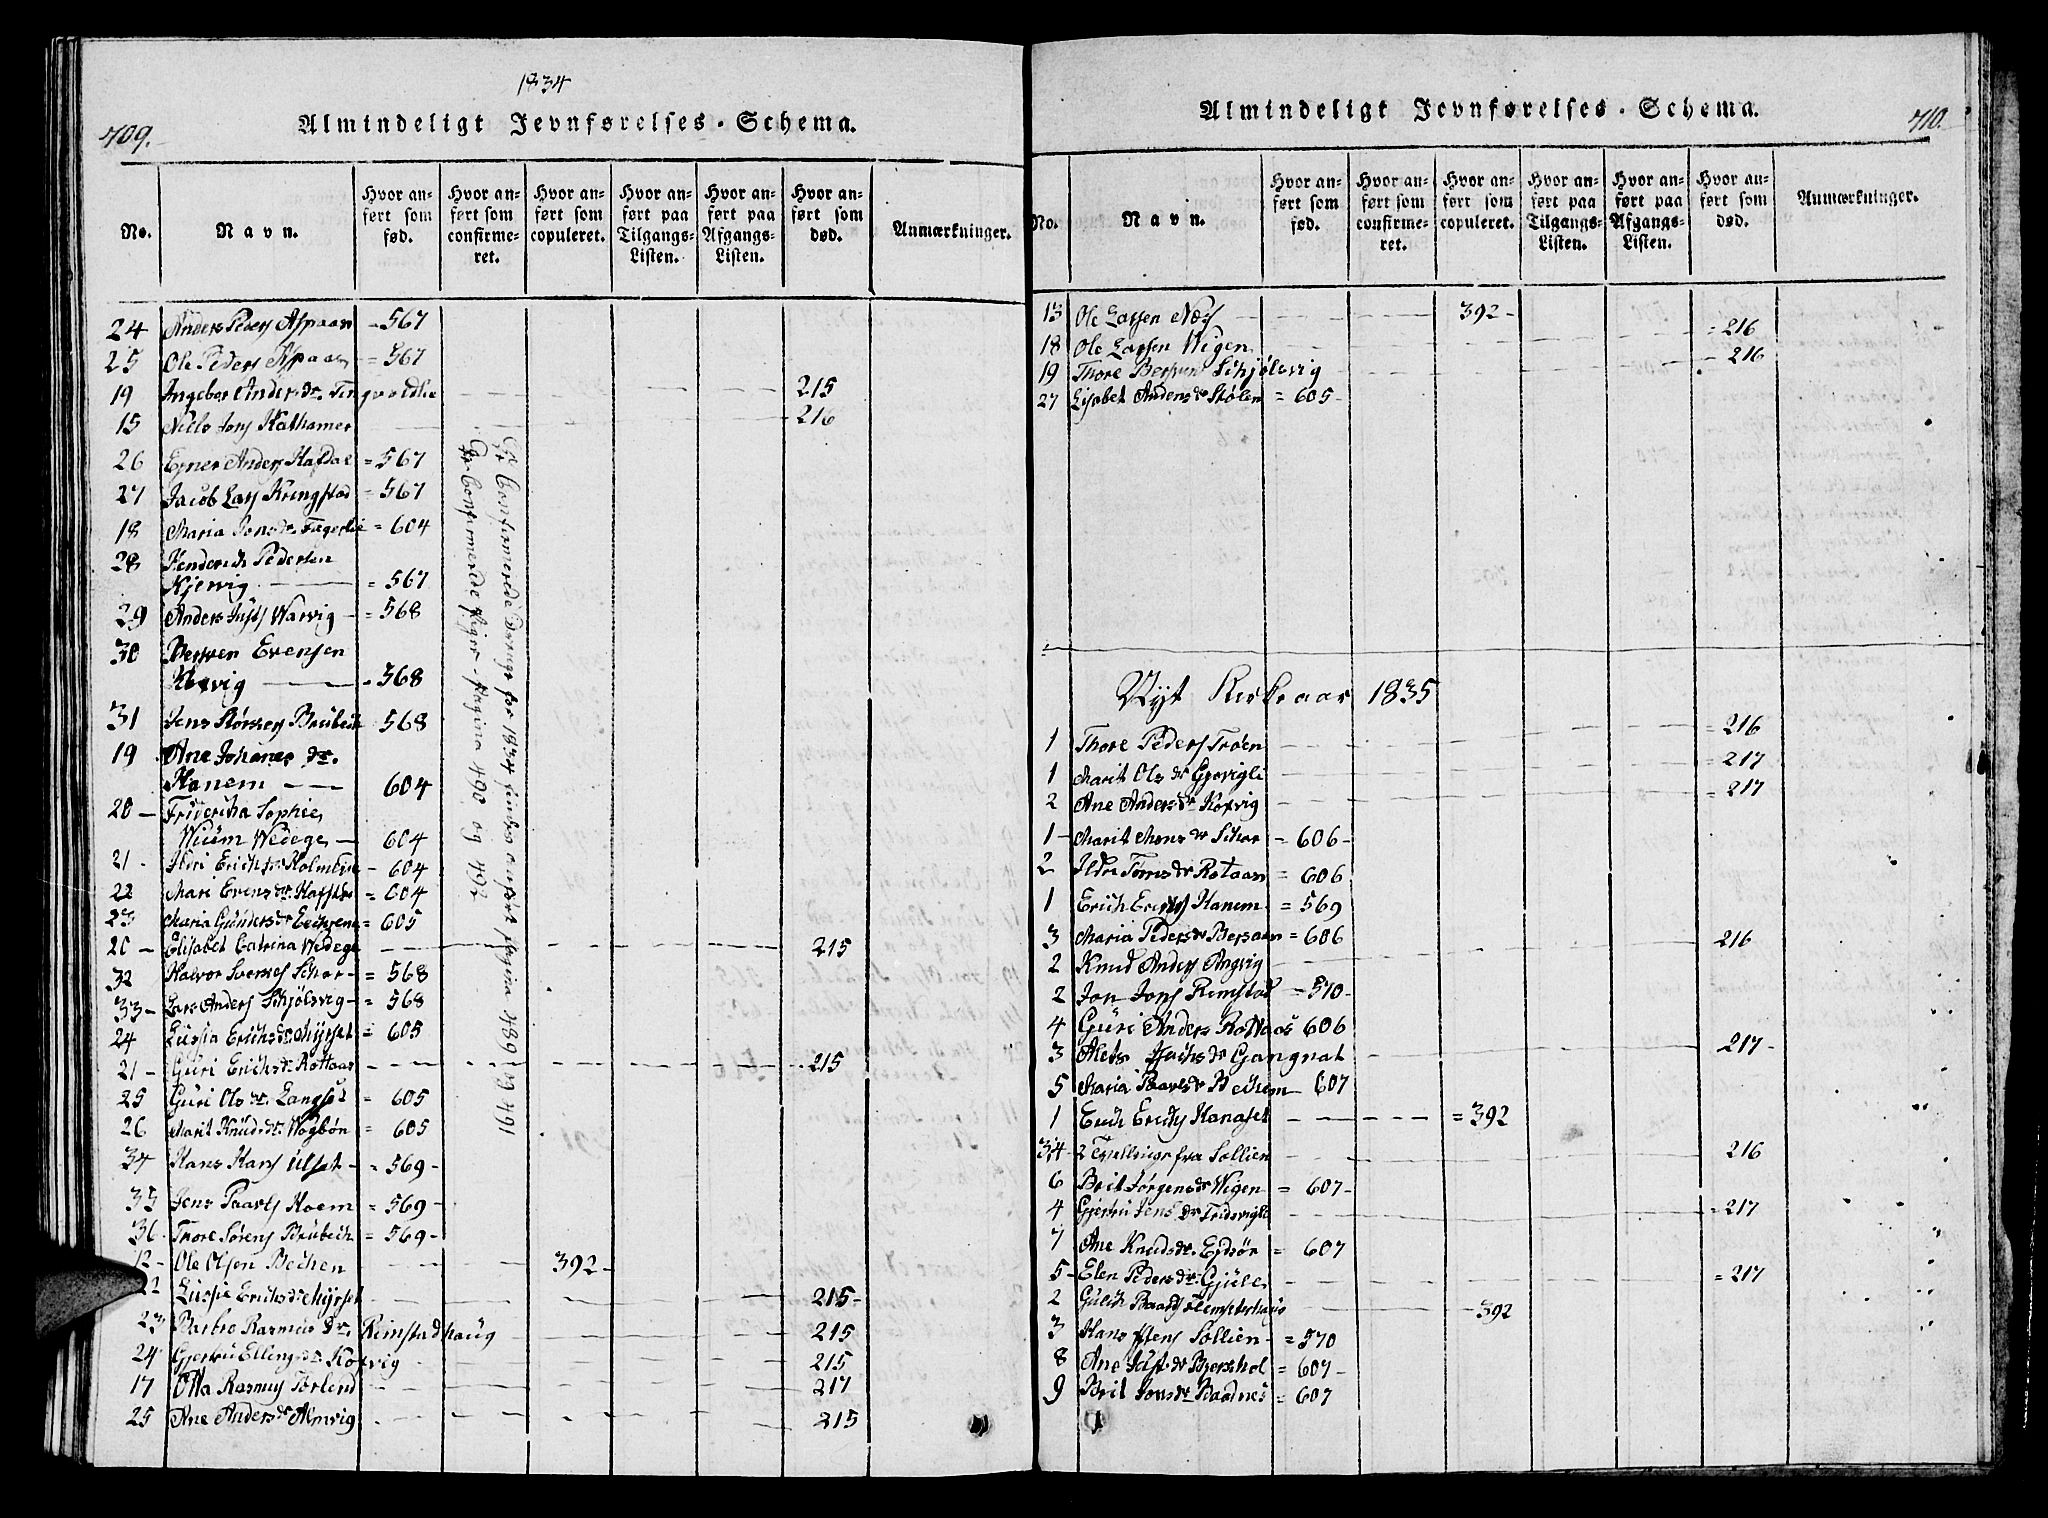 1834
409.
Almindeligt Jevnførelses-Schema.
No. Navn. Hvor anført som fød. Hvor anført som confirmeret. Hvor anført som copuleret. Hvor anført paa Tilgangs-Listen. Hvor anført paa Afgangs-Listen. Hvor anført som død. Anmærkninger.
24 Anders Peders Aspaas - 567
25 Ole Peders Aspaas = 567
19 Ingebor Anders dr. Tingvoldlie 215
15 Niels Jons Kathamer 216
26 Ejner Anders Hafdal = 567
27 Jacob Lars Kringstad = 567
18 Maria Jons dr. Fagerlie = 604
28 Henderich Pedersen
Kjervig = 567
29 Anders Justs Warvig = 568
30 Berren Evensen
Kl vig - 568
31 Jens Størkers Brubech 568
19 Ane Johanes dr.
Hanem 604
20 - Friderica Sophie
Wiüm Wedege - 604
21 - Ildri Erichs dr. Holmeide - 604
22 Mari Evens dr. = 604
23 Maria Gunders dr. = 605
20 - Elisabet Catrina Wedege 215
32 Halvor Sverkes Schar = 568
33 - Lars Anders Schjølsvig = 568
24 Lussia Erichs dr. Myrset = 605
21 - Guri Erichs dr. Rottaas 215
25 Guri Ols dr. Langset = 605
26 Marit Knuds dr. Wogbøn = 605
34 Hans Hans Ulset = 569
35 Jens Paarls Hoem = 569
36 Thore Sørens Brubech = 569
12 - Ole Olsen Bechen 392
22 Lussie Erichs dr. Myrset 215
23 Barbro Rasmus dr. Rimstadhaug 215
24 Gjertru Ellings dr. Kovig 215
17 Otta Rasmus Torlend 217
25 Ane Anders dr. Almvig 215
Er Confirmerede Drenge for 1834 findes anført pagina 489 og 491
Er Confirmerede Piger pagina 490 og 492
Almindeligt Jevnførelses-Schema.
410.
No. Navn. Hvor anført som fød. Hvor anført som confirmeret. Hvor anført som copuleret. Hvor anført paa Tilgangs-Listen. Hvor anført paa Afgangs-Listen. Hvor anført som død. Anmærkninger.
13 Ole Larsen Næs 392
18 Ole Larsen Wigen = 216
19 Thore Schjølsvig 216
27 Lisabet Anders dr. Stølen = 605
Nyt Kirkeaar 1835
1 Thore Peders Trøen = 216
1 Marit Ols dr. Gjøvigli = 217
2 Ane Anders dr. Koxvig = 217
1 - Marit Mons dr. Schar = 606
2 Ildri Tøres dr. Rotaas = 606
1 Erich Erichs Hanem = 569
3 Maria Peders dr. Bersaas = 606
2 Knud Anders Angvig 216
2 Jon Jons Rimstad = 570
4 Guri Anders Rottaas 606
3 Alets dr. Gangnat 217
5 Maria Paarls dr. Bechem 607
1 Erich Erichs Hanaset = 392
3,4 2 Tvillinger fra Sollien 216
6 Brit Jørgens dr. Wigen = 607
4 Gjertru Jens dr. Tredsvigli = 217
7 Ane Knuds dr. Ejdsør = 607
5 - Elen Peders dr. Gjüle = 217
2 Gulich Baards 392
3 Hans Stens Sollien = 570
8 Ane Just dr. = 607
9 Brit Jons dr. Baadnes = 607